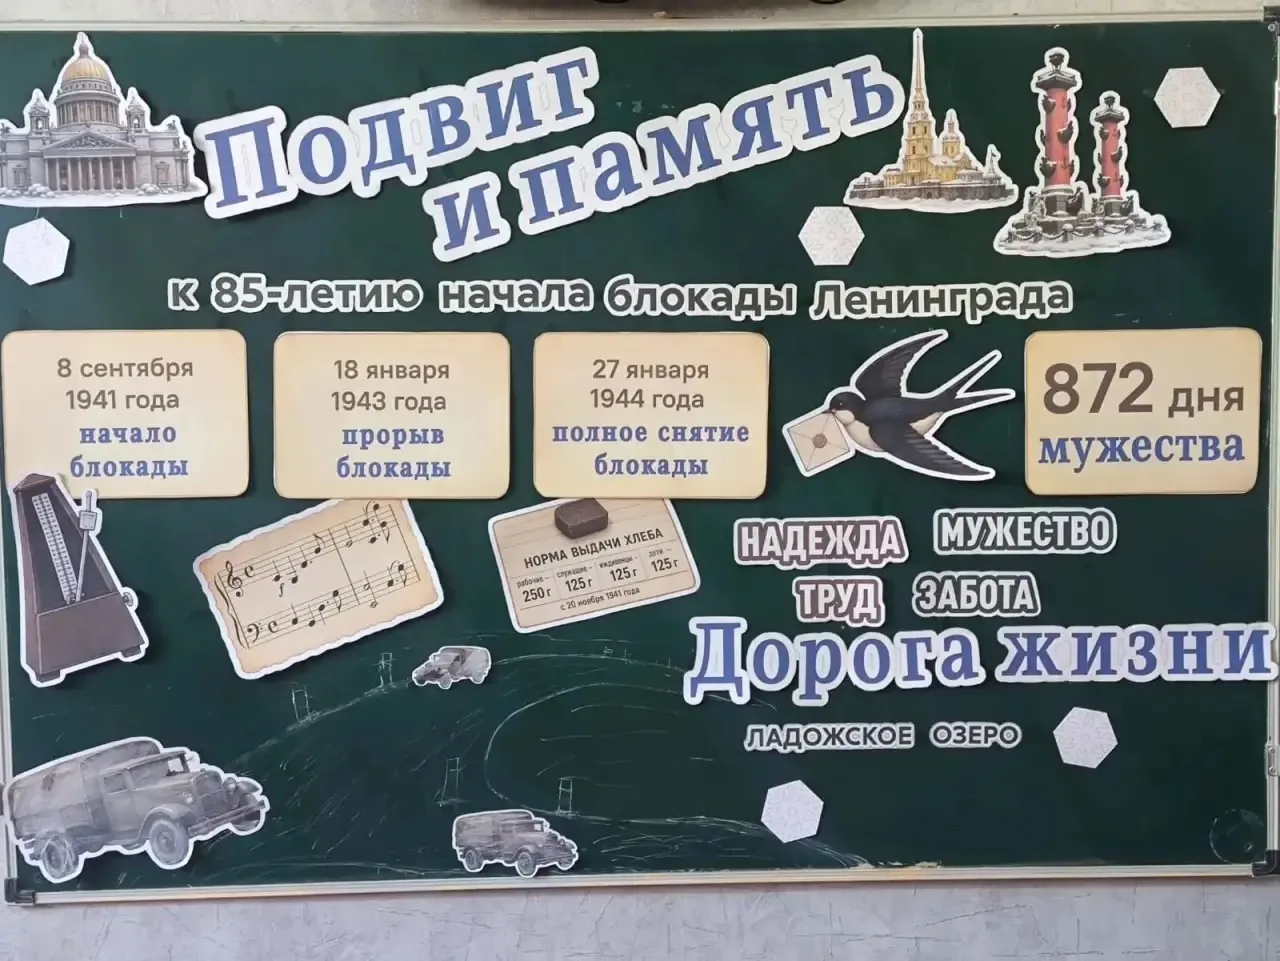 Подвиг
и память
к 85-летию начала блокады Ленинграда
8 сентября
1941 года
начало
блокады
18 января
1943 года
прорыв
блокады
27 января
1944 года
полное снятие
блокады
872 дня
мужества
НОРМА ВЫДАЧИ ХЛЕБА
рабочие – служащие – иждивенцы – дети –
250 г 125 г 125 г 125 г
с 20 ноября 1941 года
НАДЕЖДА МУЖЕСТВО
ТРУД ЗАБОТА
Дорога жизни
ЛАДОЖСКОЕ ОЗЕРО